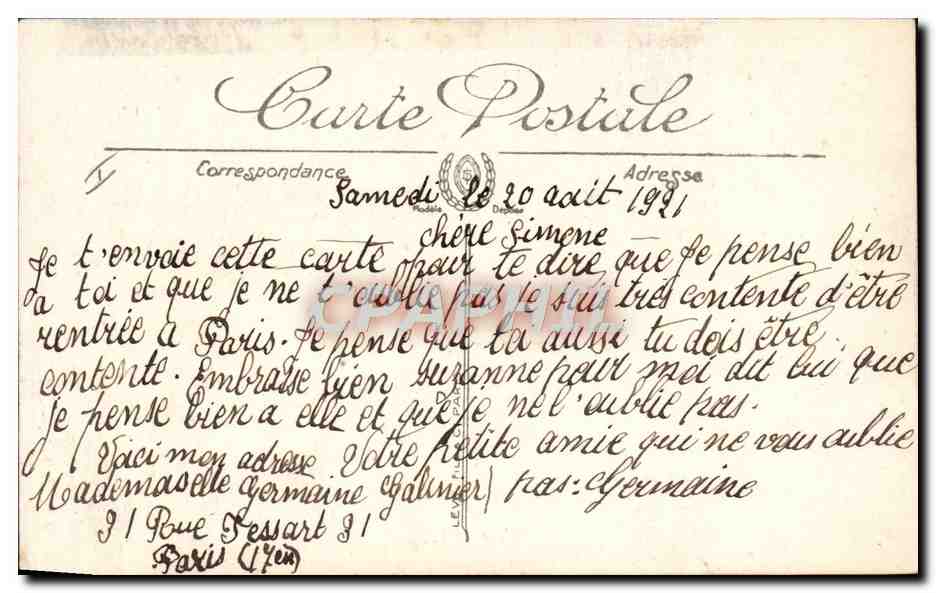 Carte Postale
Correspondance
Adresse
Modèle Déposé
Samedi le 20 août 1921
chère Simone
Je t'envoie cette carte pour te dire que Je pense bien
a toi et que je ne t'oublie pas Je suis très contente d'être
rentrée a Paris. Je pense que toi aussi tu dois être
contente. Embrasse bien suzanne pour moi dit lui que
je pense bien a elle et que je ne l'oublie pas.
Voici mon adresse Votre petite amie qui ne vous oublie
Mademaselle Germaine Galinier) pas: Germaine
31 Rue Tessart 31
Paris (17em)
CPAPHIL